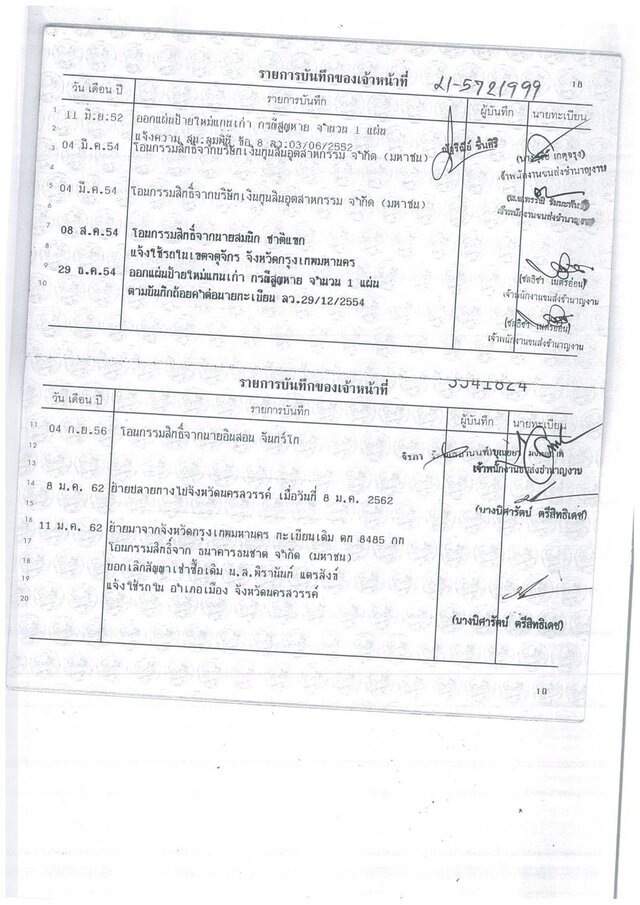 รายการบันทึกของเจ้าหน้าที่ 21-5721999 18
วัน เดือน ปี รายการบันทึก ผู้บันทึก นายทะเบียน
1 11 มิ.ย.52 ออกแผ่นป้ายใหม่แทนเก่า กรณีสูญหาย จำนวน 1 แผ่น
2 แจ้งความ สน.ลุมพินี ข้อ 8 ลว.03/06/2552
3 04 มี.ค.54 โอนกรรมสิทธิ์จากบริษัทเงินทุนสินอุตสาหกรรม จำกัด (มหาชน)
เจ้าพนักงานขนส่งชำนาญงาน
5 04 มี.ค.54 โอนกรรมสิทธิ์จากบริษัทเงินทุนสินอุตสาหกรรม จำกัด (มหาชน)
เจ้าพนักงานขนส่งชำนาญงาน
7 08 ส.ค.54 โอนกรรมสิทธิ์จากนายสมนึก ชาติแขก
8 แจ้งใช้รถในเขตจตุจักร จังหวัดกรุงเทพมหานคร
9 29 ธ.ค.54 ออกแผ่นป้ายใหม่แทนเก่า กรณีสูญหาย จำนวน 1 แผ่น (ชลธิชา เนตรอ่อน)
10 ตามบันทึกถ้อยคำต่อนายทะเบียน ลว.29/12/2554 เจ้าพนักงานขนส่งชำนาญงาน
(ชลธิชา เนตรอ่อน)
เจ้าพนักงานขนส่งชำนาญงาน
รายการบันทึกของเจ้าหน้าที่ 5541824
วัน เดือน ปี รายการบันทึก ผู้บันทึก นายทะเบียน
11 04 ก.ย.56 โอนกรรมสิทธิ์จากนายอินสอน จันทร์โท
12 จิรภา
13 เจ้าพนักงานขนส่งชำนาญงาน
14 8 ม.ค. 62 ย้ายปลายทางไปจังหวัดนครสวรรค์ เมื่อวันที่ 8 ม.ค. 2562
15 (นางนิศารัตน์ ตรีสิทธิเดช)
16 11 ม.ค. 62 ย้ายมาจากจังหวัดกรุงเทพมหานคร ทะเบียนเดิม ตท 8485 กท
17 โอนกรรมสิทธิ์จาก ธนาคารธนชาต จำกัด (มหาชน)
18 บอกเลิกสัญญาเช่าซื้อเดิม น.ส.พิรานันท์ แตรสังข์
19 แจ้งใช้รถใน อำเภอเมือง จังหวัดนครสวรรค์
20
(นางนิศารัตน์ ตรีสิทธิเดช)
19